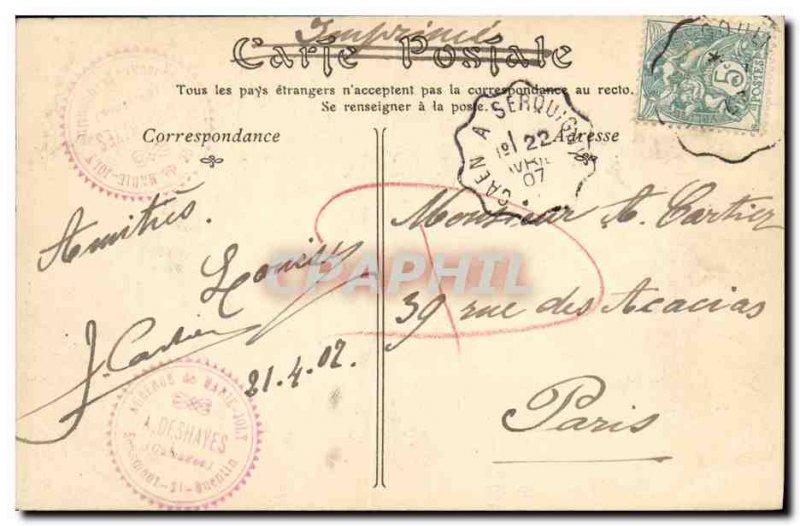 Imprimé
Carte Postale
Tous les pays étrangers n'acceptent pas la correspondance au recto.
Se renseigner à la poste.
Correspondance
Adresse
CAEN A SERQUIGNY
22
AVRIL
07
5
POSTES
MARIE-JOLY
Amitiés.
Louise
J. Cartier
21.4.07
Monsieur A. Cartier
39 rue des Acacias
Paris
CPAPHIL
AUBERGE de MARIE-JOLY
A. DESHAYES
St-Quentin